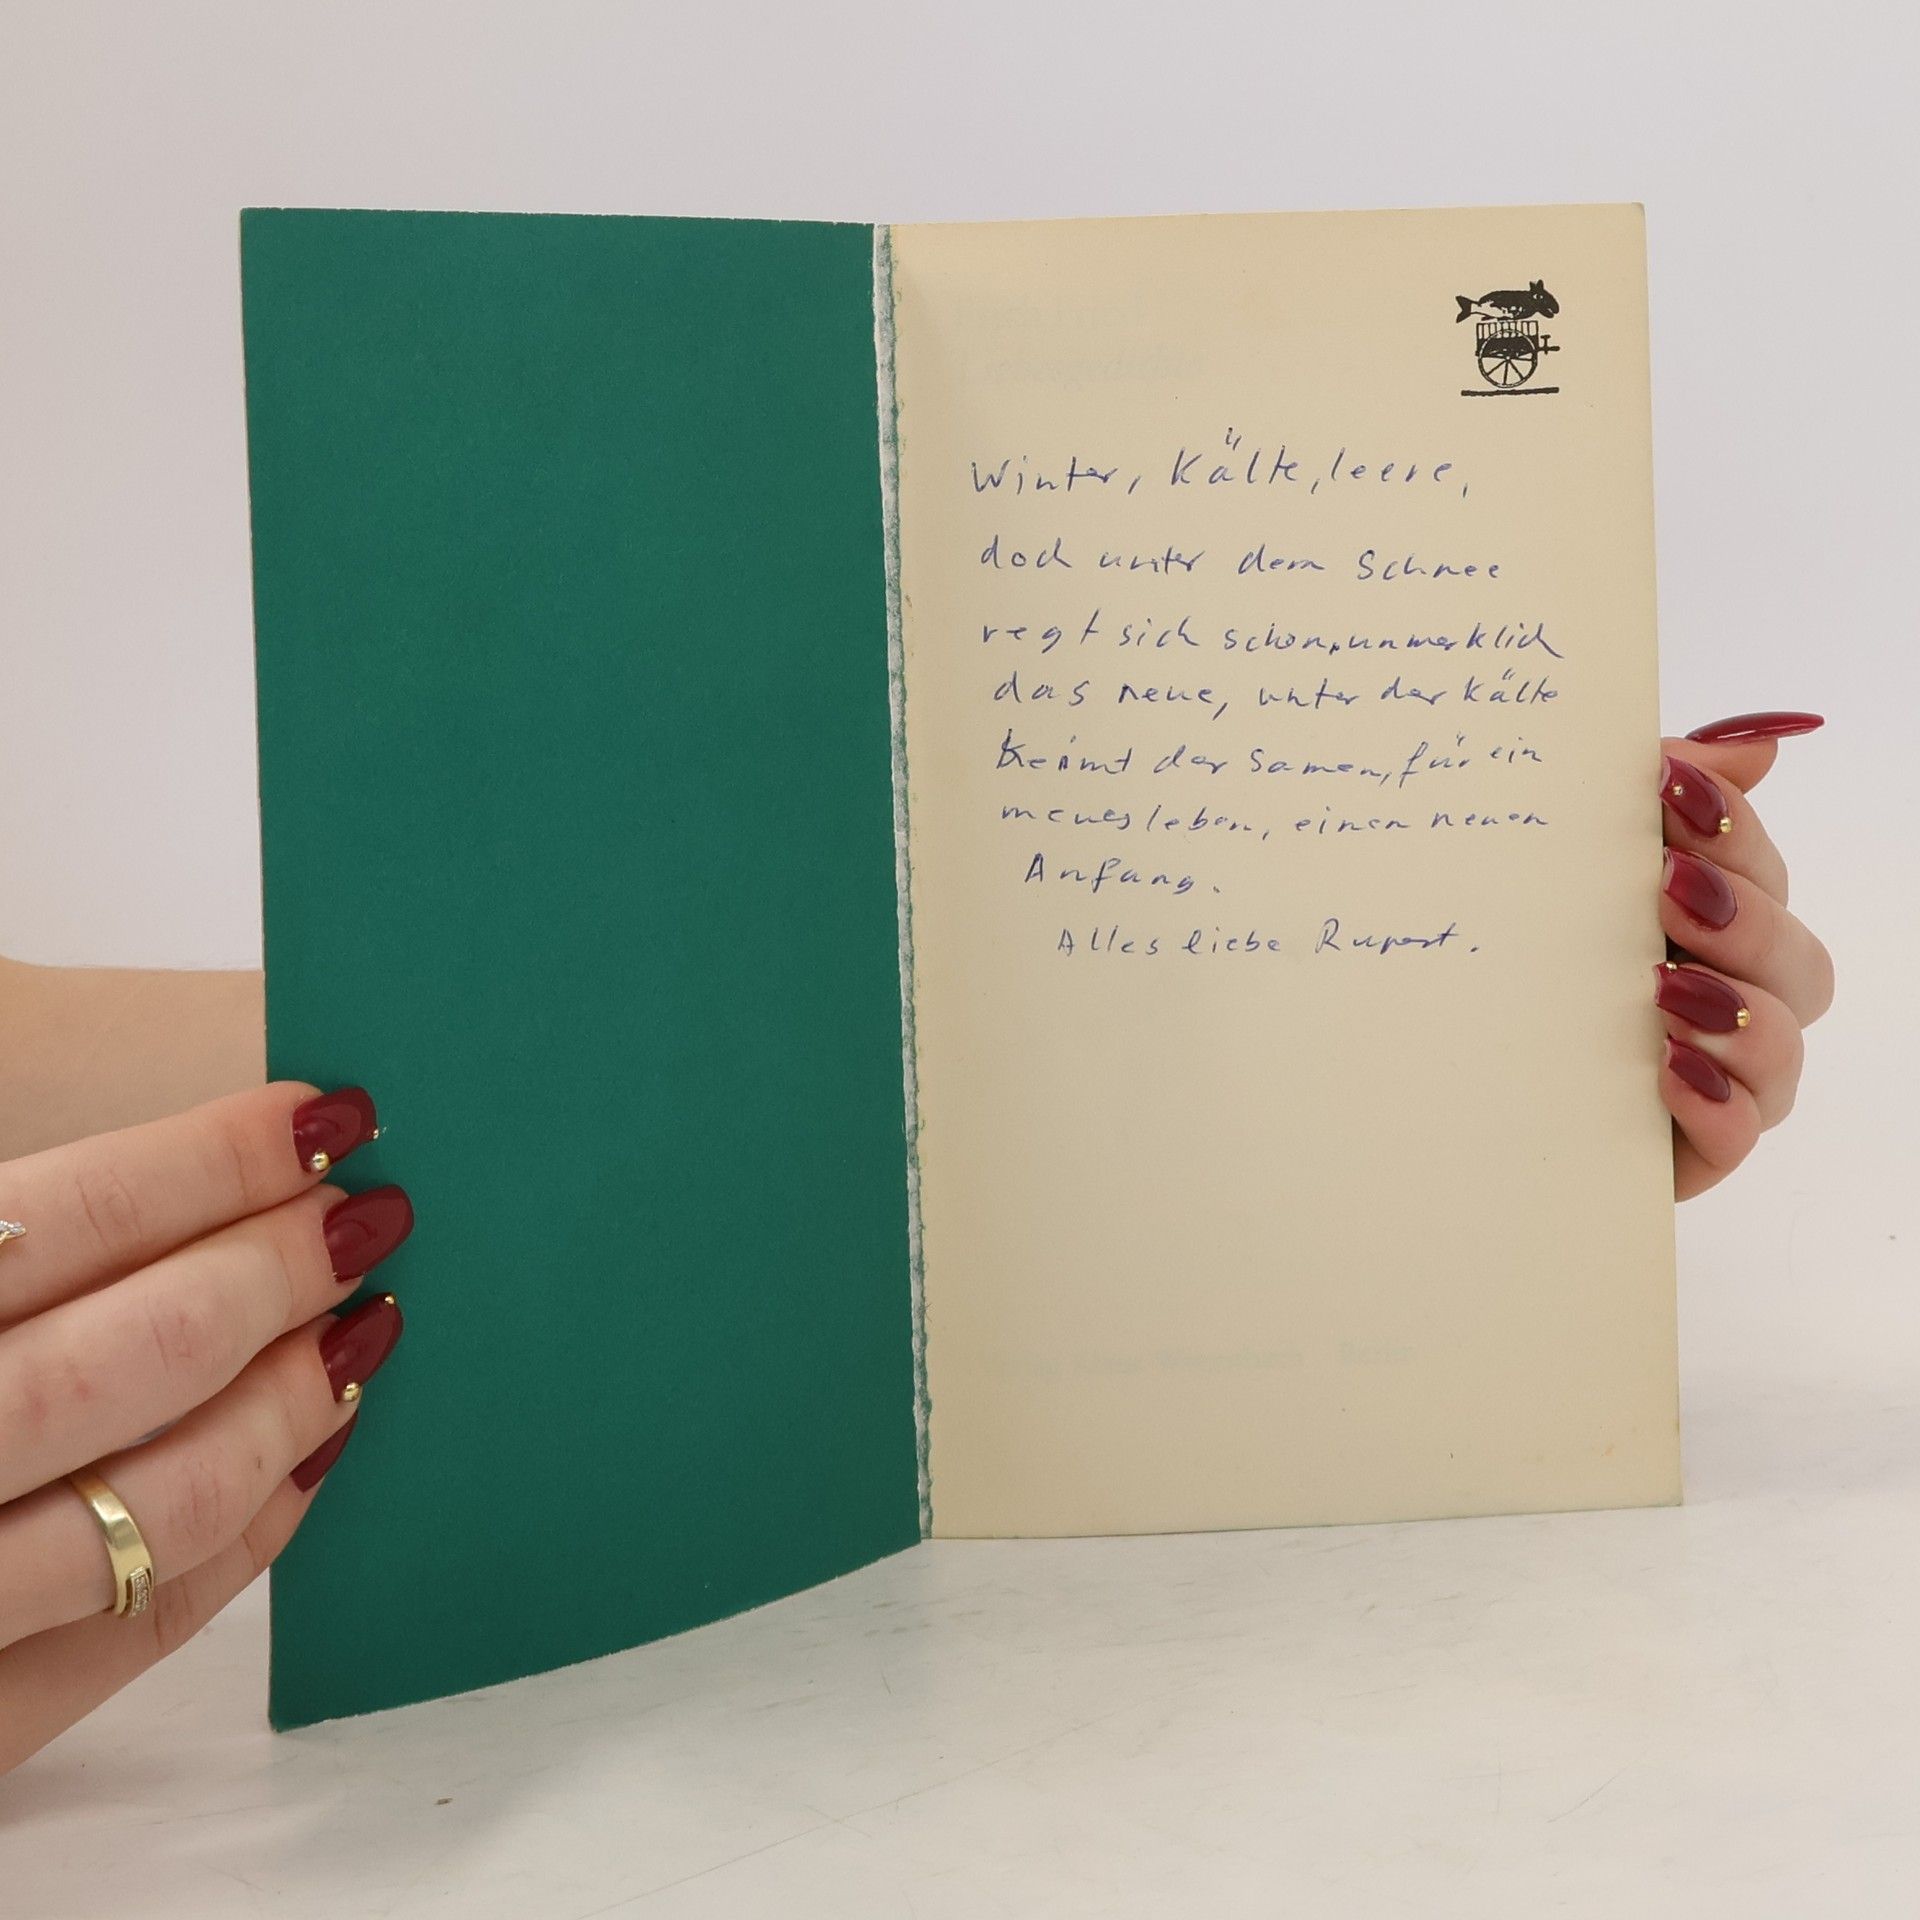 Winter, Kälte, leere,
doch unter dem Schnee
regt sich schon, unmerklich
das neue, unter der Kälte
Keimt der Samen, für ein
neues leben, einen neuen
Anfang.
Alles liebe Rupert.